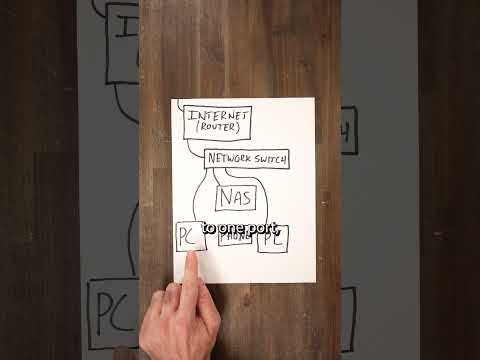 INTERNET
(ROUTER)
NETWORK SWITCH
NAS
to one port,
PC
PHONE
PC